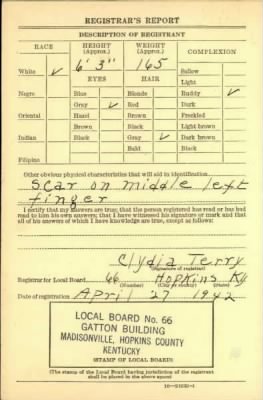 REGISTRAR'S REPORT
DESCRIPTION OF REGISTRANT
RACE HEIGHT (Approx.) WEIGHT (Approx.) COMPLEXION
6' 3" 165
White ✓ Sallow
EYES HAIR Light
Negro Blue Blonde Ruddy ✓
Gray ✓ Red Dark
Oriental Hazel Brown Freckled
Brown Black Light brown
Indian Black Gray ✓ Dark brown
Bald Black
Filipino
Other obvious physical characteristics that will aid in identification
Scar on middle left
finger
I certify that my answers are true; that the person registered has read or has had
read to him his own answers; that I have witnessed his signature or mark and that
all of his answers of which I have knowledge are true, except as follows:
Clydia Terry
(Signature of registrar)
Registrar for Local Board 66 Hopkins Ky
(Number) (City or county) (State)
Date of registration April 27 1942
LOCAL BOARD No. 66
GATTON BUILDING
MADISONVILLE, HOPKINS COUNTY
KENTUCKY
(STAMP OF LOCAL BOARD)
(The stamp of the Local Board having jurisdiction of the registrant
shall be placed in the above space)